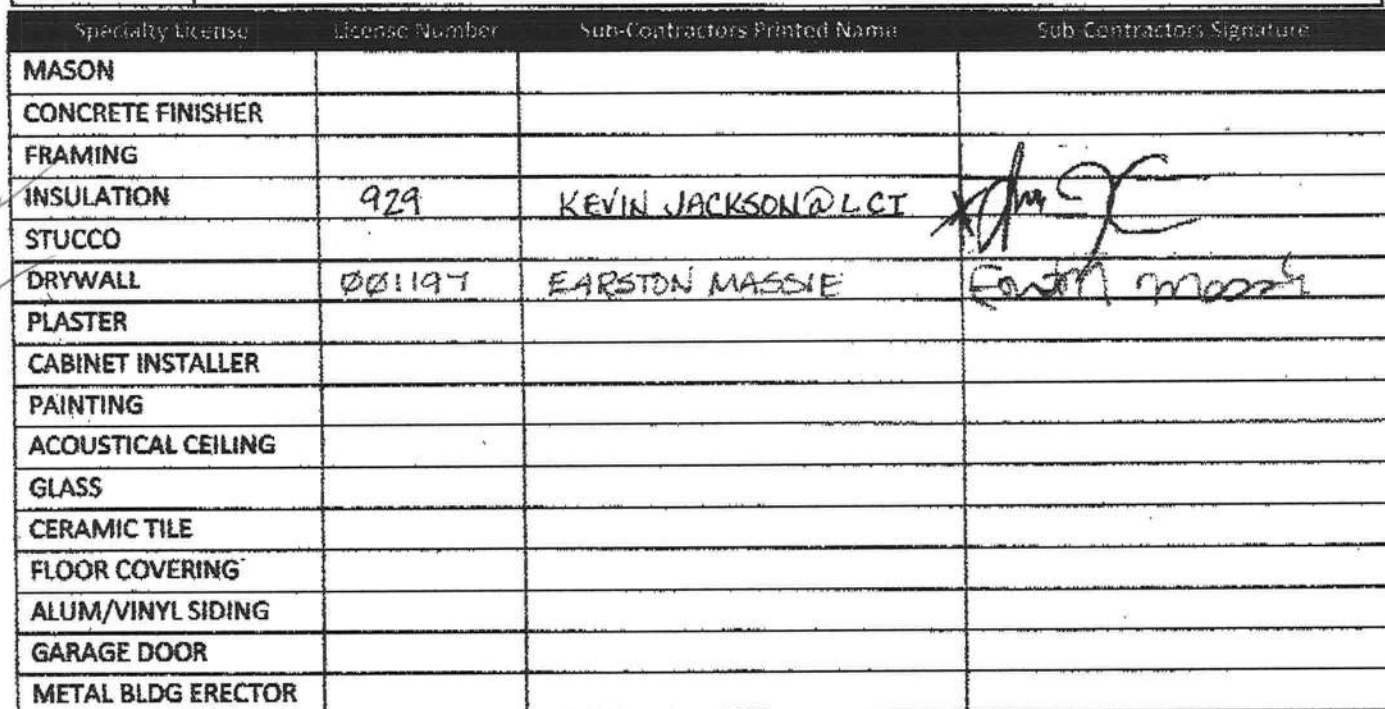 Specialty License License Number Sub-Contractors Printed Name Sub-Contractors Signature
MASON
CONCRETE FINISHER
FRAMING
INSULATION 929 KEVIN JACKSON@LCI
STUCCO
DRYWALL 001197 EARSTON MASSIE
PLASTER
CABINET INSTALLER
PAINTING
ACOUSTICAL CEILING
GLASS
CERAMIC TILE
FLOOR COVERING
ALUM/VINYL SIDING
GARAGE DOOR
METAL BLDG ERECTOR